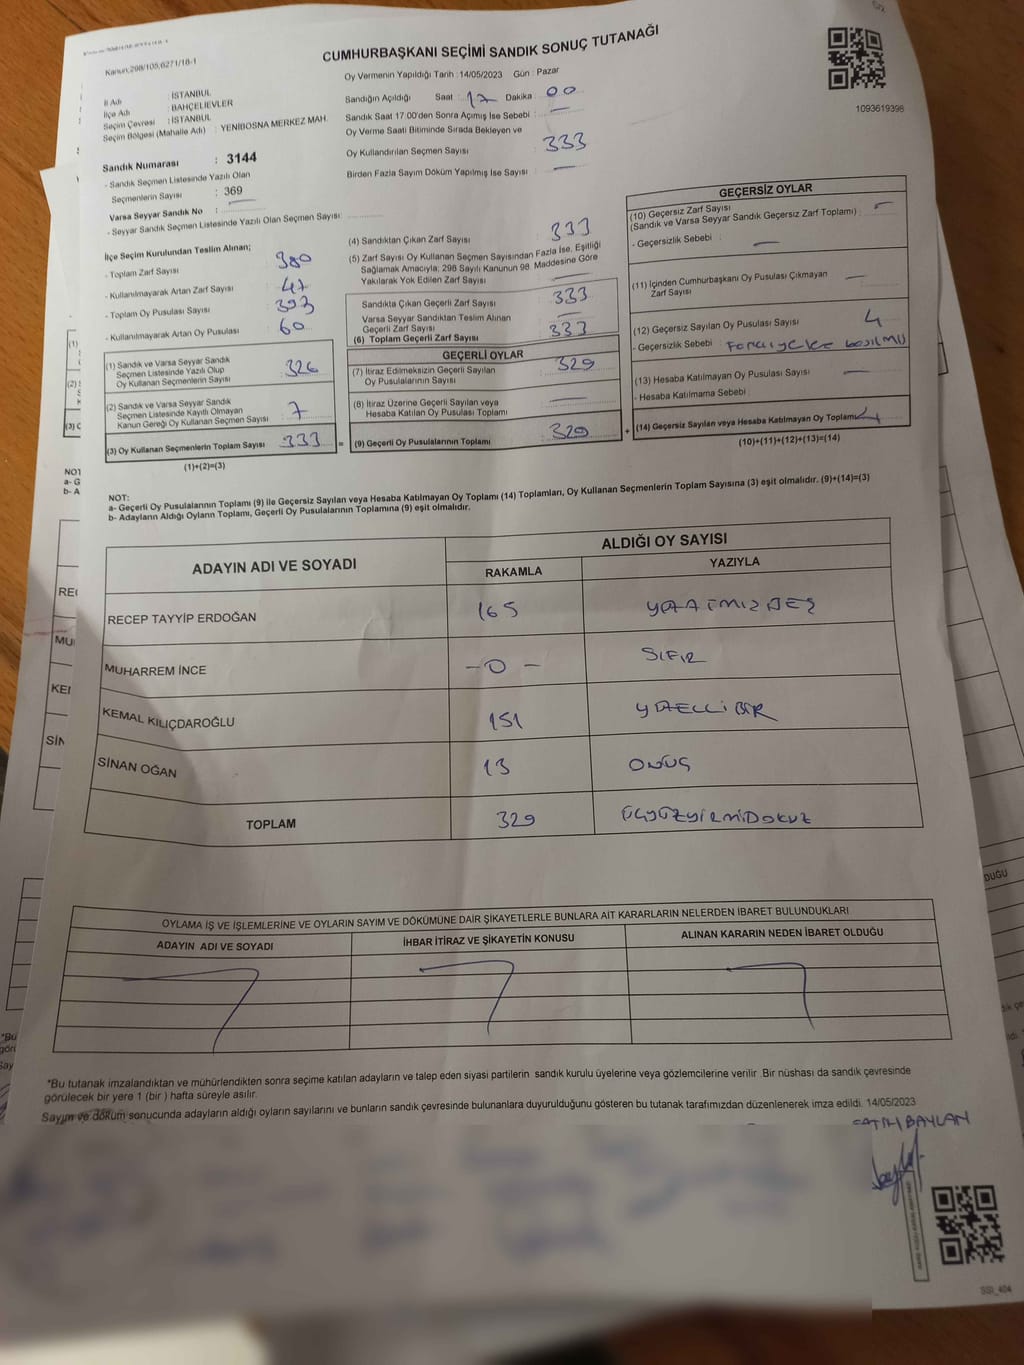 CUMHURBAŞKANI SEÇİMİ SANDIK SONUÇ TUTANAĞI
Kanun;298/105,6271/18-1
İl Adı : İSTANBUL
İlçe Adı : BAHÇELİEVLER
Seçim Çevresi : İSTANBUL
Seçim Bölgesi (Mahalle Adı) : YENİBOSNA MERKEZ MAH.
Sandık Numarası : 3144
- Sandık Seçmen Listesinde Yazılı Olan
Seçmenlerin Sayısı : 369
Varsa Seyyar Sandık No :
- Seyyar Seçmen Listesinde Yazılı Olan Seçmen Sayısı:
Oy Vermenin Yapıldığı Tarih :14/05/2023 Gün : Pazar
Sandığın Açıldığı Saat : 17 Dakika : 00
Sandık Saat 17:00'den Sonra Açılmış İse Sebebi : —
Oy Verme Saati Bitiminde Sırada Bekleyen ve
Oy Kullandırılan Seçmen Sayısı 333
Birden Fazla Sayım Döküm Yapılmış İse Sayısı : —
1093619398
İlçe Seçim Kurulundan Teslim Alınan;
- Toplam Zarf Sayısı 380
- Kullanılmayarak Artan Zarf Sayısı : 47
- Toplam Oy Pusulası Sayısı 393
- Kullanılmayarak Artan Oy Pusulası 60
(1) Sandık ve Varsa Seyyar Sandık
Seçmen Listesinde Yazılı Olup
Oy Kullanan Seçmenlerin Sayısı 326
(2) Sandık ve Varsa Seyyar Sandık
Seçmen Listesinde Kayıtlı Olmayan
Kanun Gereği Oy Kullanan Seçmen Sayısı : 7
(3) Oy Kullanan Seçmenlerin Toplam Sayısı 333
(1)+(2)=(3)
(4) Sandıktan Çıkan Zarf Sayısı 333
(5) Zarf Sayısı Oy Kullanan Seçmen Sayısından Fazla İse, Eşitliği
Sağlamak Amacıyla; 298 Sayılı Kanunun 98. Maddesine Göre
Yakılarak Yok Edilen Zarf Sayısı —
Sandıkta Çıkan Geçerli Zarf Sayısı 333
Varsa Seyyar Sandıktan Teslim Alınan
Geçerli Zarf Sayısı —
(6) Toplam Geçerli Zarf Sayısı 333
GEÇERLİ OYLAR
(7) İtiraz Edilmeksizin Geçerli Sayılan
Oy Pusulalarının Sayısı 329
(8) İtiraz Üzerine Geçerli Sayılan veya
Hesaba Katılan Oy Pusulası Toplamı —
= (9) Geçerli Oy Pusulalarının Toplamı 329
GEÇERSİZ OYLAR
(10) Geçersiz Zarf Sayısı
(Sandık ve Varsa Seyyar Sandık Geçersiz Zarf Toplamı) : —
- Geçersizlik Sebebi : —
(11) İçinden Cumhurbaşkanı Oy Pusulası Çıkmayan
Zarf Sayısı —
(12) Geçersiz Sayılan Oy Pusulası Sayısı 4
- Geçersizlik Sebebi : basılmış
(13) Hesaba Katılmayan Oy Pusulası Sayısı : —
- Hesaba Katılmama Sebebi :
+ (14) Geçersiz Sayılan veya Hesaba Katılmayan Oy Toplamı 4
(10)+(11)+(12)+(13)=(14)
NOT:
a- Geçerli Oy Pusulalarının Toplamı (9) ile Geçersiz Sayılan veya Hesaba Katılmayan Oy Toplamı (14) Toplamları, Oy Kullanan Seçmenlerin Toplam Sayısına (3) eşit olmalıdır. (9)+(14)=(3)
b- Adayların Aldığı Oyların Toplamı, Geçerli Oy Pusulalarının Toplamına (9) eşit olmalıdır.
ADAYIN ADI VE SOYADI ALDIĞI OY SAYISI
RAKAMLA YAZIYLA
RECEP TAYYİP ERDOĞAN 165 YÜZATMIŞBEŞ
MUHARREM İNCE - 0 - SIFIR
KEMAL KILIÇDAROĞLU 151 YÜZELLİBİR
SİNAN OĞAN 13 ONÜÇ
TOPLAM 329 ÜÇYÜZYİRMİDOKUZ
OYLAMA İŞ VE İŞLEMLERİNE VE OYLARIN SAYIM VE DÖKÜMÜNE DAİR ŞİKAYETLERLE BUNLARA AİT KARARLARIN NELERDEN İBARET BULUNDUKLARI
ADAYIN ADI VE SOYADI İHBAR İTİRAZ VE ŞİKAYETİN KONUSU ALINAN KARARIN NEDEN İBARET OLDUĞU
*Bu tutanak imzalandıktan ve mühürlendikten sonra seçime katılan adayların ve talep eden siyasi partilerin sandık kurulu üyelerine veya gözlemcilerine verilir .Bir nüshası da sandık çevresinde
görülecek bir yere 1 (bir ) hafta süreyle asılır.
Sayım ve döküm sonucunda adayların aldığı oyların sayılarını ve bunların sandık çevresinde bulunanlara duyurulduğunu gösteren bu tutanak tarafımızdan düzenlenerek imza edildi. 14/05/2023
FATİH BAYLAN
SSI_404